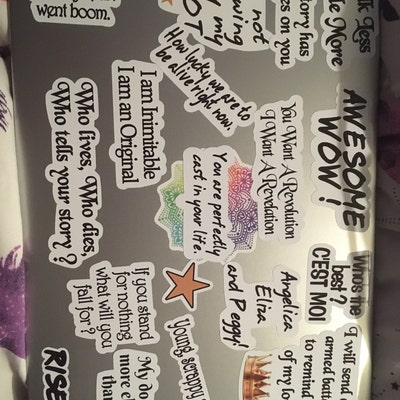 went boom.
not
wing
my
OT
story has
es on you
lk Less
le More
How lucky we are to
be alive right now.
I am Inimitable
I am an Original
AWESOME
WOW!
You Want A Revolution
I Want A Revelation
Who lives, Who dies,
Who tells your story?
You are perfectly
cast in your life.
Who's the
best?
C'EST MOI
Angelica
Eliza
and Peggy!
If you stand
for nothing
what will you
fall for?
I will send a
armed batt
to remind
of my lo
Young scrappy
My do
more e
than
RISE